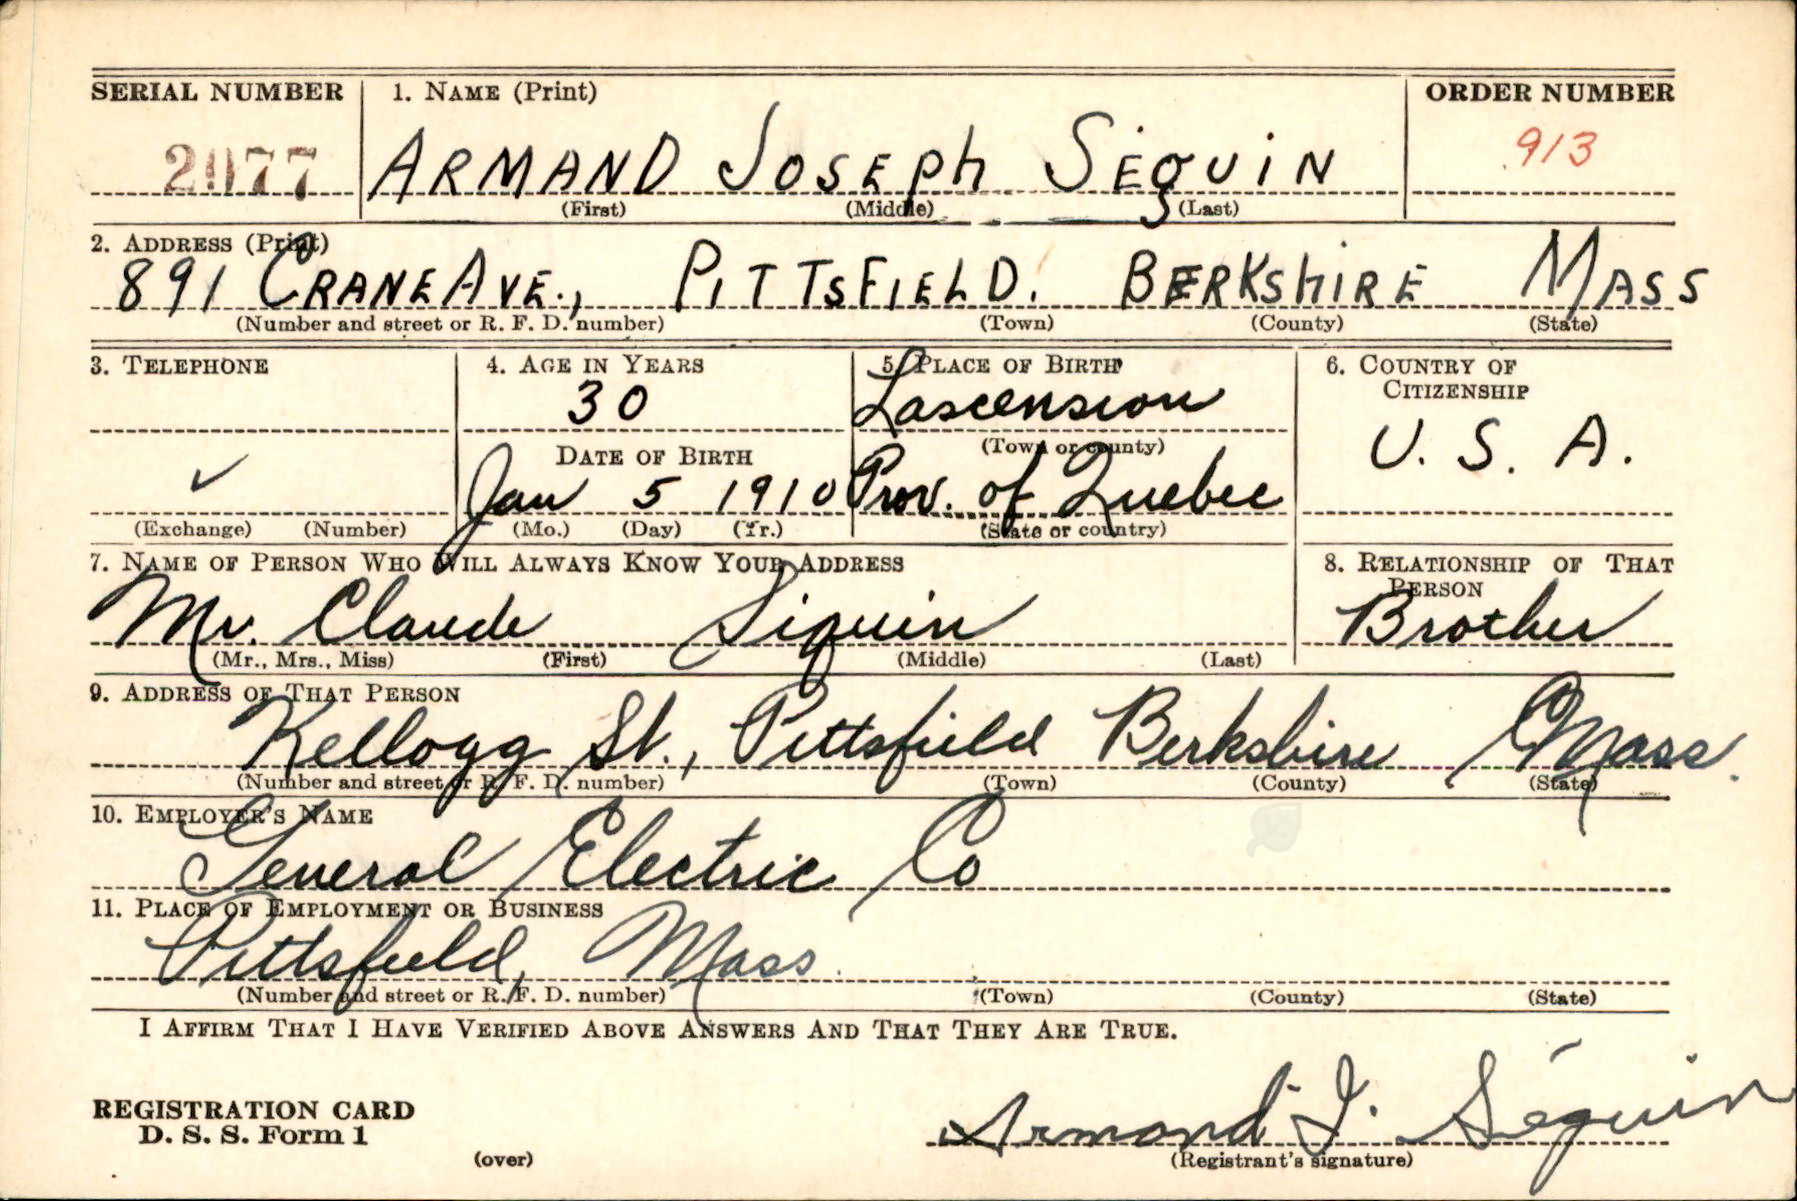 SERIAL NUMBER 1. NAME (Print) ORDER NUMBER
2977 ARMAND JOSEPh SÉGUiN 913
(First) (Middle) (Last)
2. ADDRESS (Print)
891 CRANE AVE., PiTTsFiELD. BERKShiRE MASS
(Number and street or R. F. D. number) (Town) (County) (State)
3. TELEPHONE 4. AGE IN YEARS 5. PLACE OF BIRTH 6. COUNTRY OF
CITIZENSHIP
30 Lascension U. S. A.
(Town or county)
DATE OF BIRTH
✓ Jan 5 1910 Prov. of Quebec
(Exchange) (Number) (Mo.) (Day) (Yr.) (State or country)
7. NAME OF PERSON WHO WILL ALWAYS KNOW YOUR ADDRESS 8. RELATIONSHIP OF THAT
PERSON
Mr. Claude Siguin Brother
(Mr., Mrs., Miss) (First) (Middle) (Last)
9. ADDRESS OF THAT PERSON
Kellogg St., Pittsfield Berkshire Mass.
(Number and street or R. F. D. number) (Town) (County) (State)
10. EMPLOYER'S NAME
General Electric Co
11. PLACE OF EMPLOYMENT OR BUSINESS
Pittsfield, Mass.
(Number and street or R. F. D. number) (Town) (County) (State)
I AFFIRM THAT I HAVE VERIFIED ABOVE ANSWERS AND THAT THEY ARE TRUE.
REGISTRATION CARD
D. S. S. Form 1 Armand J. Séguin
(over) (Registrant's signature)